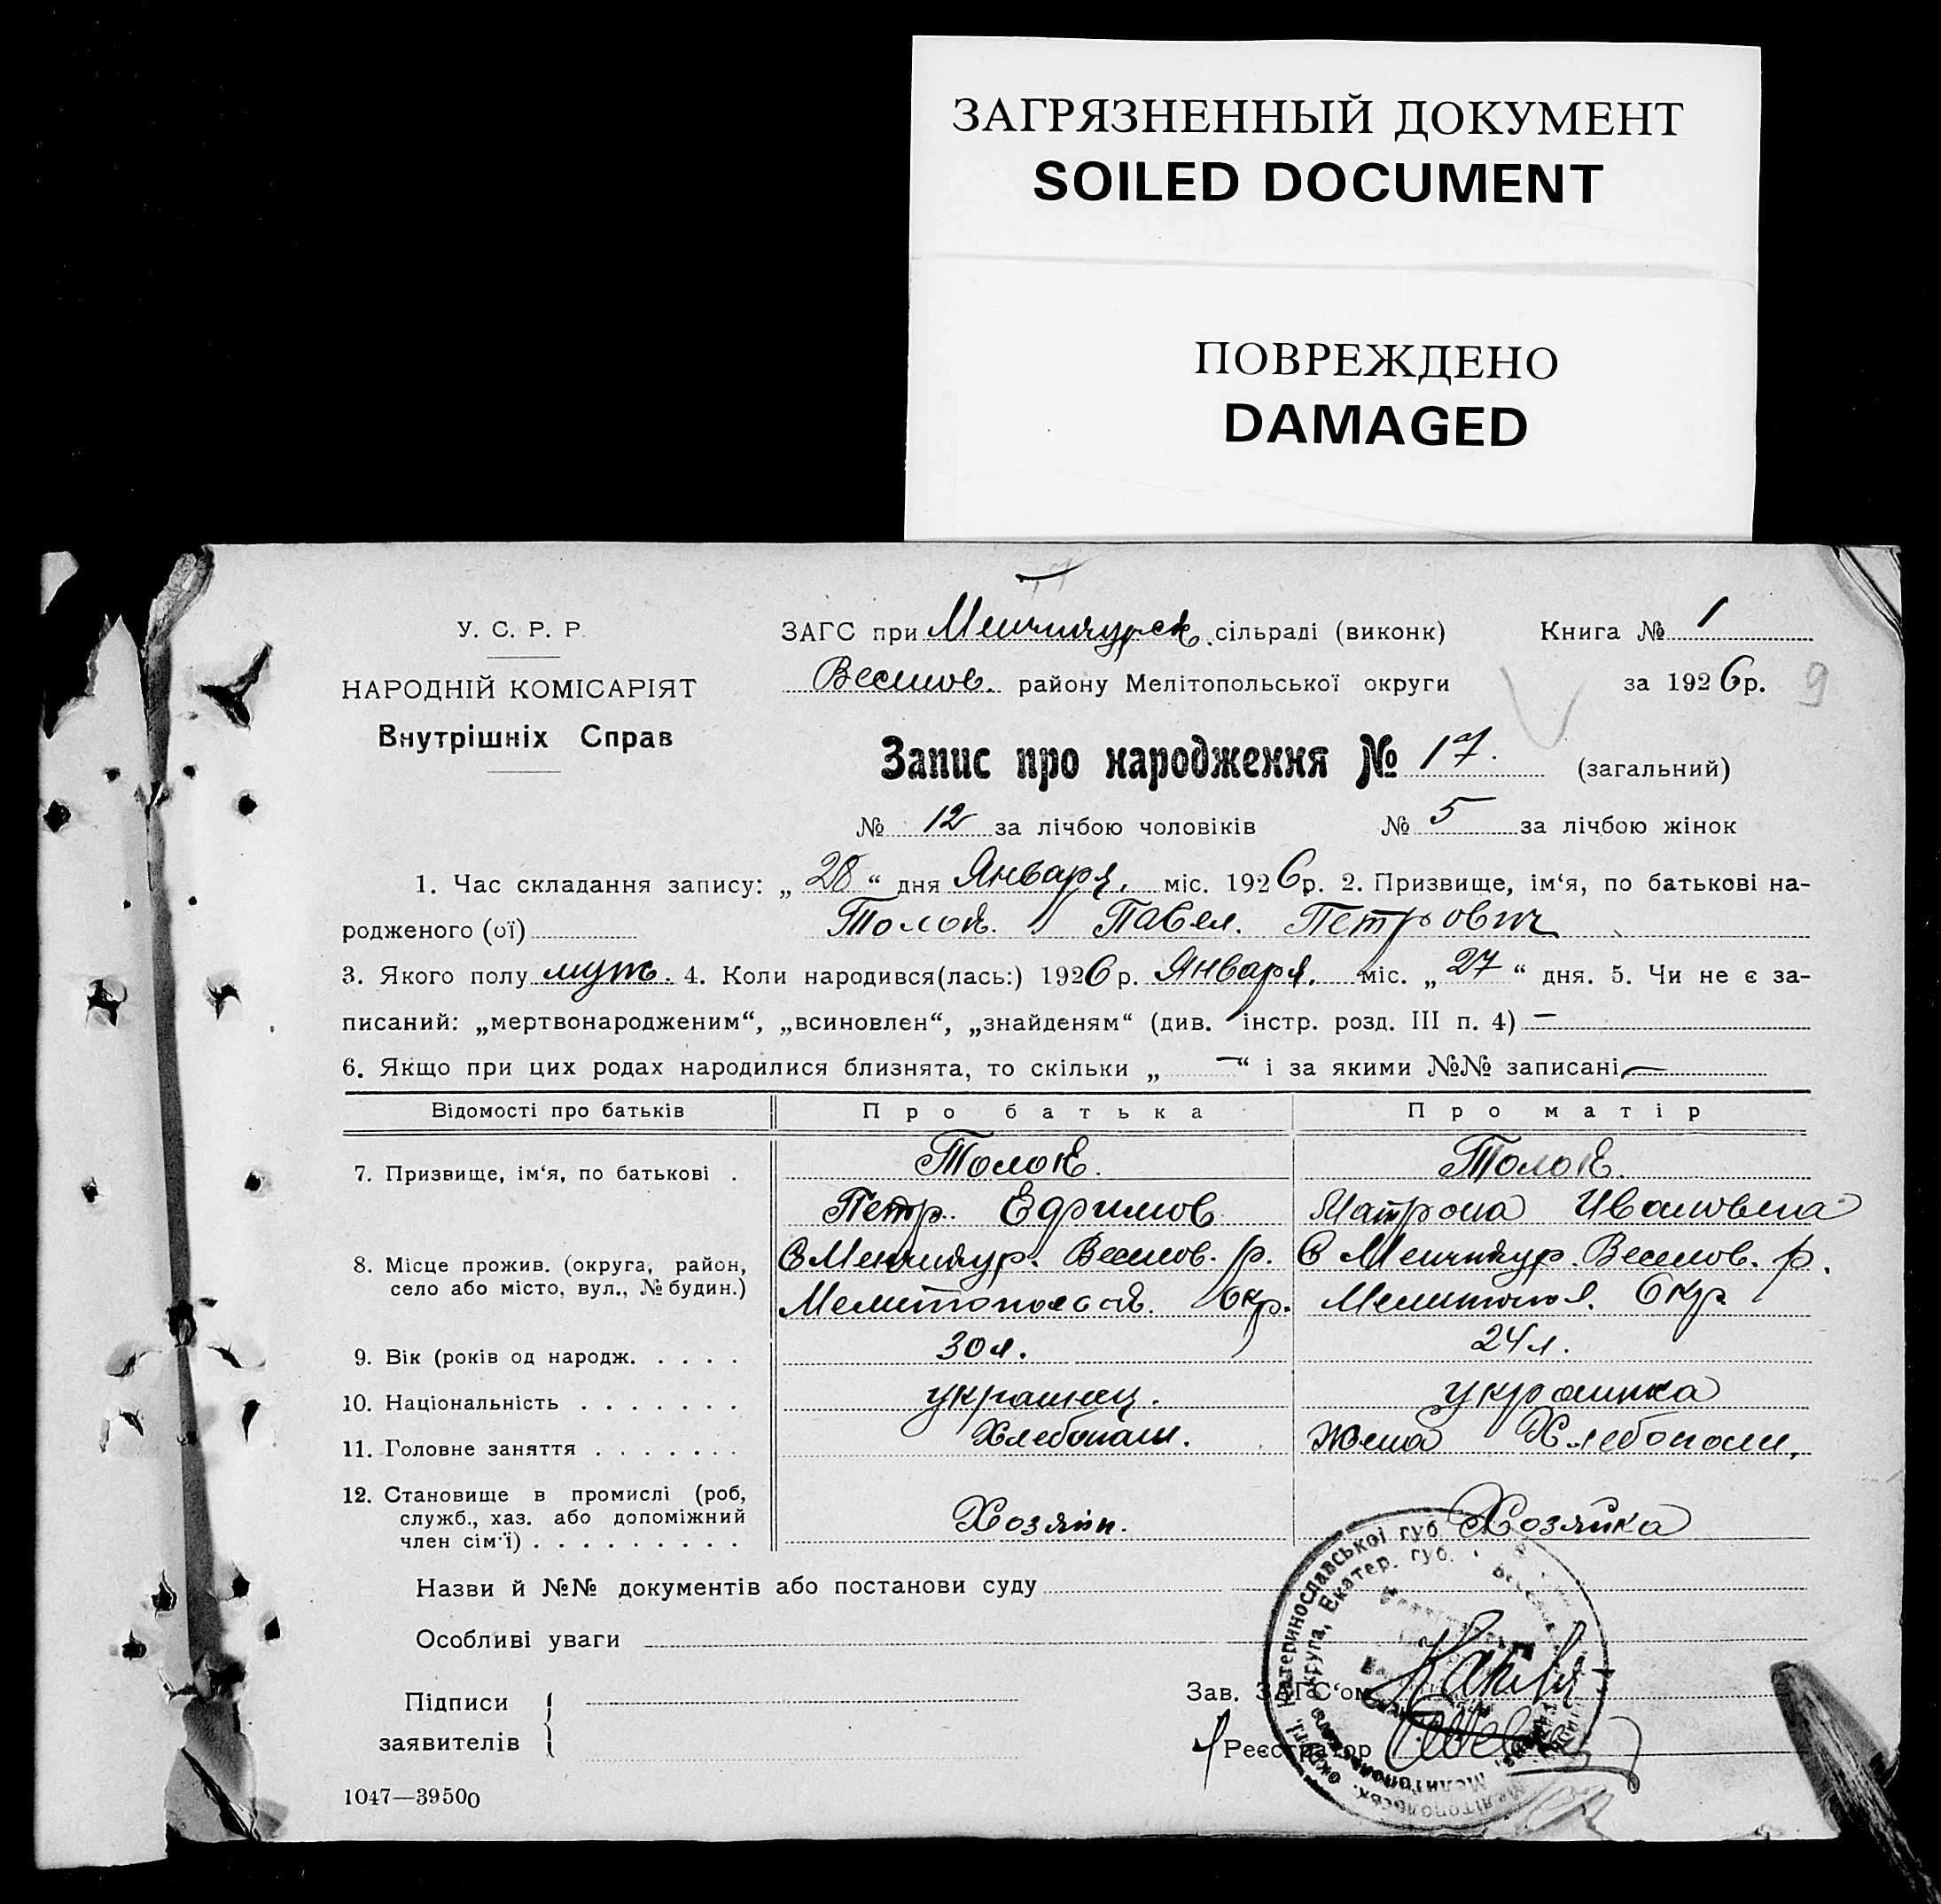 ЗАГРЯЗНЕННЫЙ ДОКУМЕНТ
SOILED DOCUMENT
ПОВРЕЖДЕНО
DAMAGED
У. С. Р. Р.
НАРОДНІЙ КОМІСАРІЯТ
Внутрішніх Справ
ЗАГС при Менчикурск. сільраді (виконк) Книга № 1
Весилов. району Мелітопольської округи за 1926 р. 9
Запис про народження № 17. (загальний)
№ 12 за лічбою чоловіків № 5 за лічбою жінок
1. Час складання запису: „28“ дня Января. міс. 1926 р. 2. Призвище, ім‘я, по батькові на-
родженого (ої) Толок. Павел. Петрович
3. Якого полу муж. 4. Коли народився(лась:) 1926 р. Января. міс. „27“ дня. 5. Чи не є за-
писаний: „мертвонародженим“, „всиновлен“, „знайденям“ (див. інстр. розд. III п. 4) —
6. Якщо при цих родах народилися близнята, то скільки „—“ і за якими №№ записані —
Відомості про батьків Про батька Про матір
7. Призвище, ім‘я, по батькові . Толок. Толок.
Петр. Ефимов Матрона Ивановна
8. Місце прожив. (округа, район, село або місто, вул., № будин.) С Менчикур. Весилов. р. С Менчикур. Веселов. р.
Мелитопольск. Окр. Мелитопол. Окр
9. Вік (років од народж. . . . . 30 л. 24 л.
10. Національність . . . . . . . украинец. украинка
11. Головне заняття . . . . . . . Хлебопаш. Жена Хлебопаш.
12. Становище в промислі (роб, служб., хаз. або допоміжний член сім‘ї) . . . . . . . . . Хозяин. Хозяйка
Назви й №№ документів або постанови суду
Особливі уваги
Підписи
заявителів
Зав. ЗАГС‘ом
Реєстратор
Катеринославської губ.
округа, Екатер. губ.
1047—39500